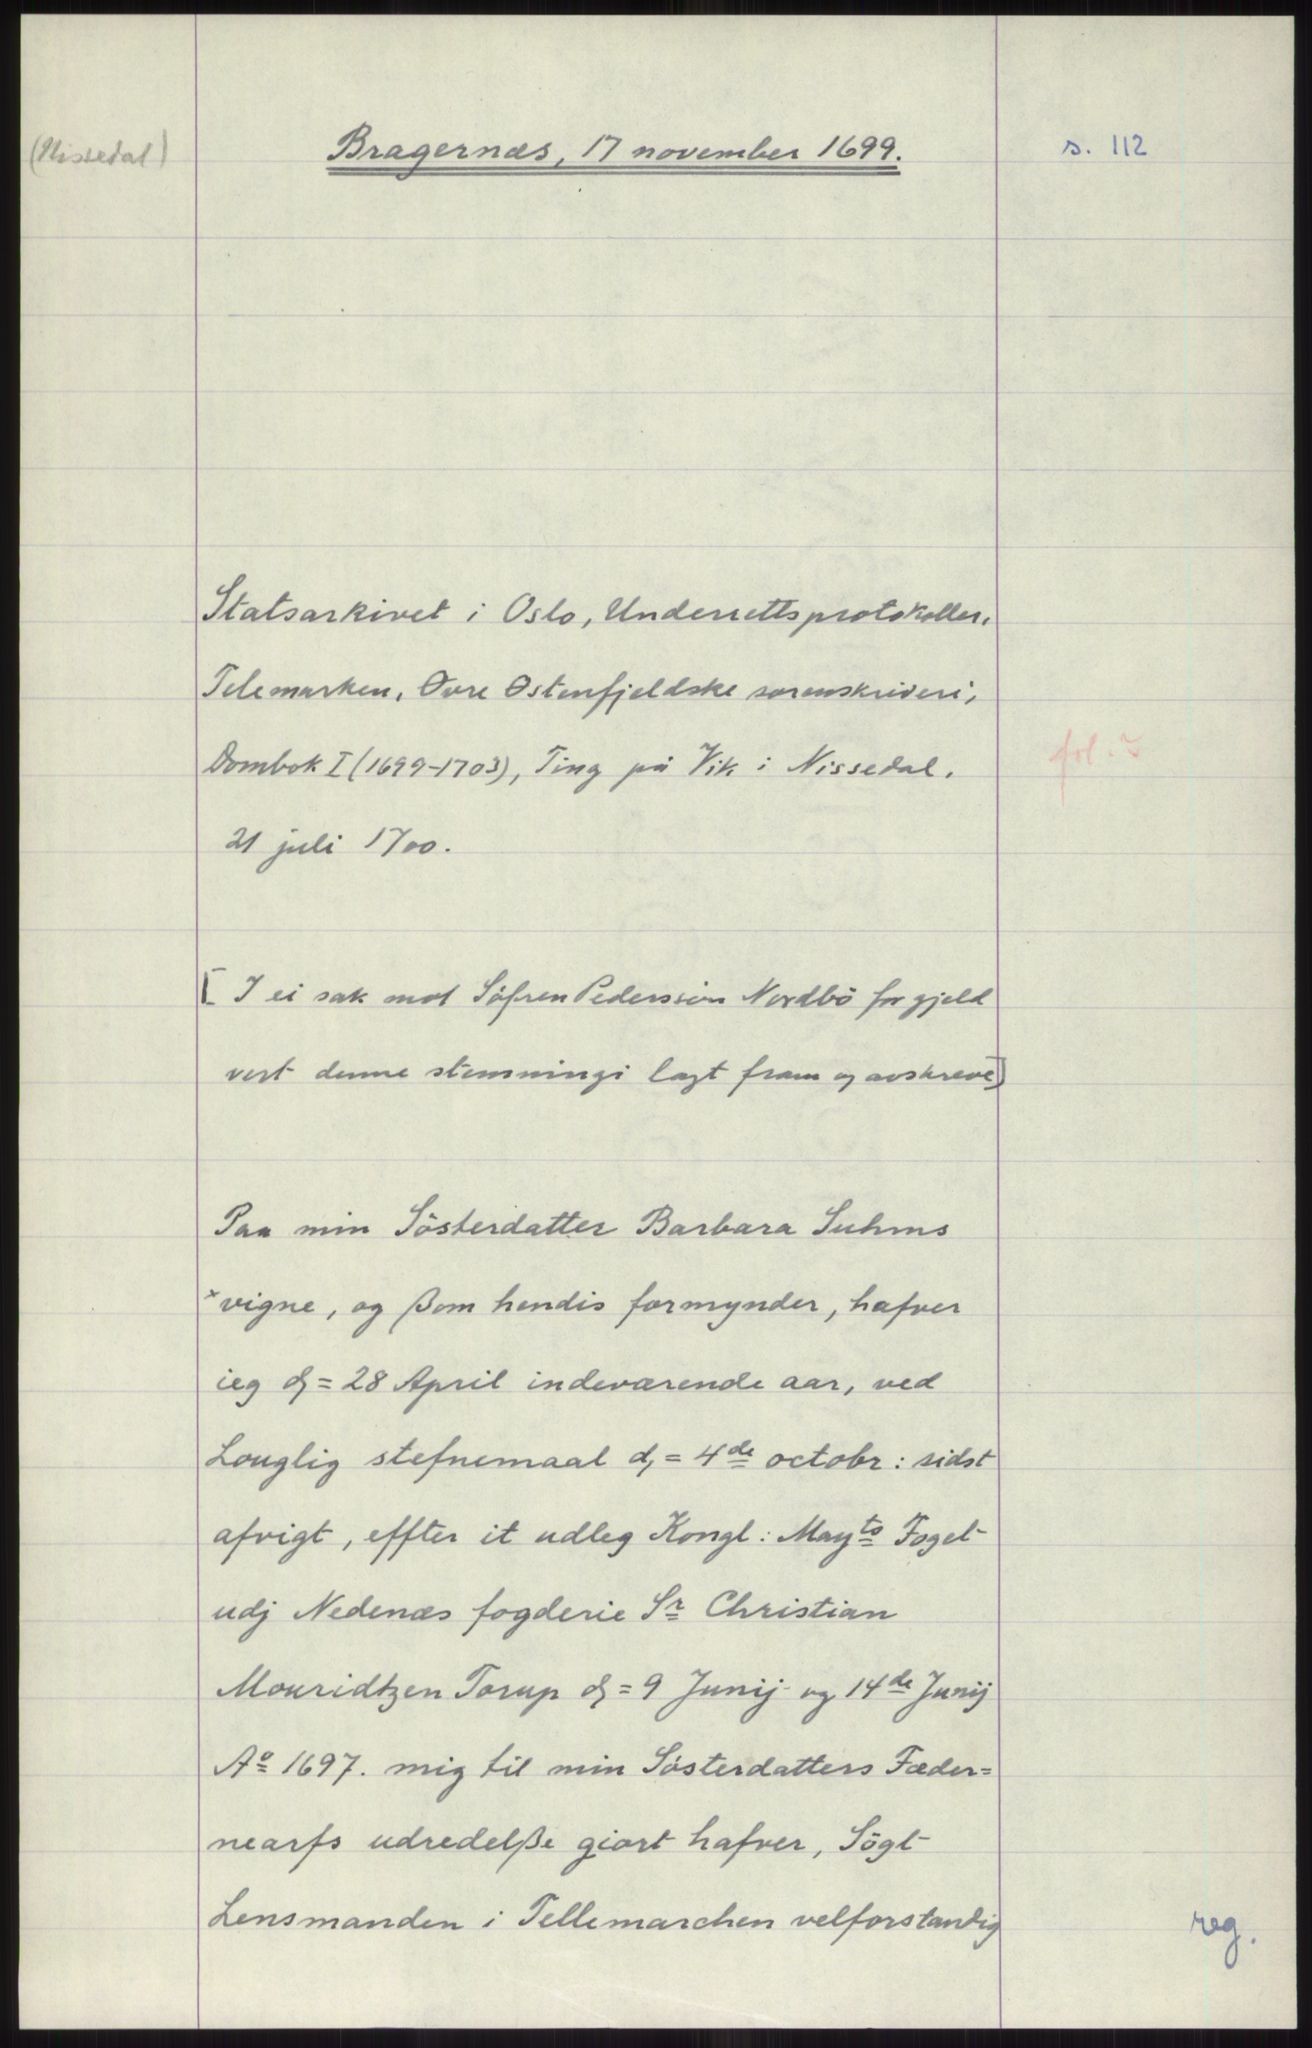 (Nissedal)
Bragernæs, 17 november 1699.
s. 112
Statsarkivet i Oslo, Underrettsprotokoller.
Telemarken, Øvre Østenfjeldske sorenskriveri,
Dombok I (1699-1703), Ting på Vik i Nissedal.
fol.
21 juli 1700.
[I ei sak mot Söfren Pederssøn Nordbö for gjeld
vert denne stemningi lagt fram og avskreve]
Paa min Sösterdatter Barbara Suhms
*vigne, og ßom hendis formynder, hafver
ieg dj = 28 April indeværende aar, ved
Louglig stefnemaal d, = 4de octobr: sidst
afvigt, effter it udleg Kongl: Mayts Foget
udj Nedenæs fogderie Sr Christian
Mouridtzen Torup dj = 9 Junij og 14de Junij
Ao 1697. mig til min Sösterdatters Fæder=
nearfs udredelße giort hafver, Sögt
Lensmanden i Tellemarchen velforstandig
reg.